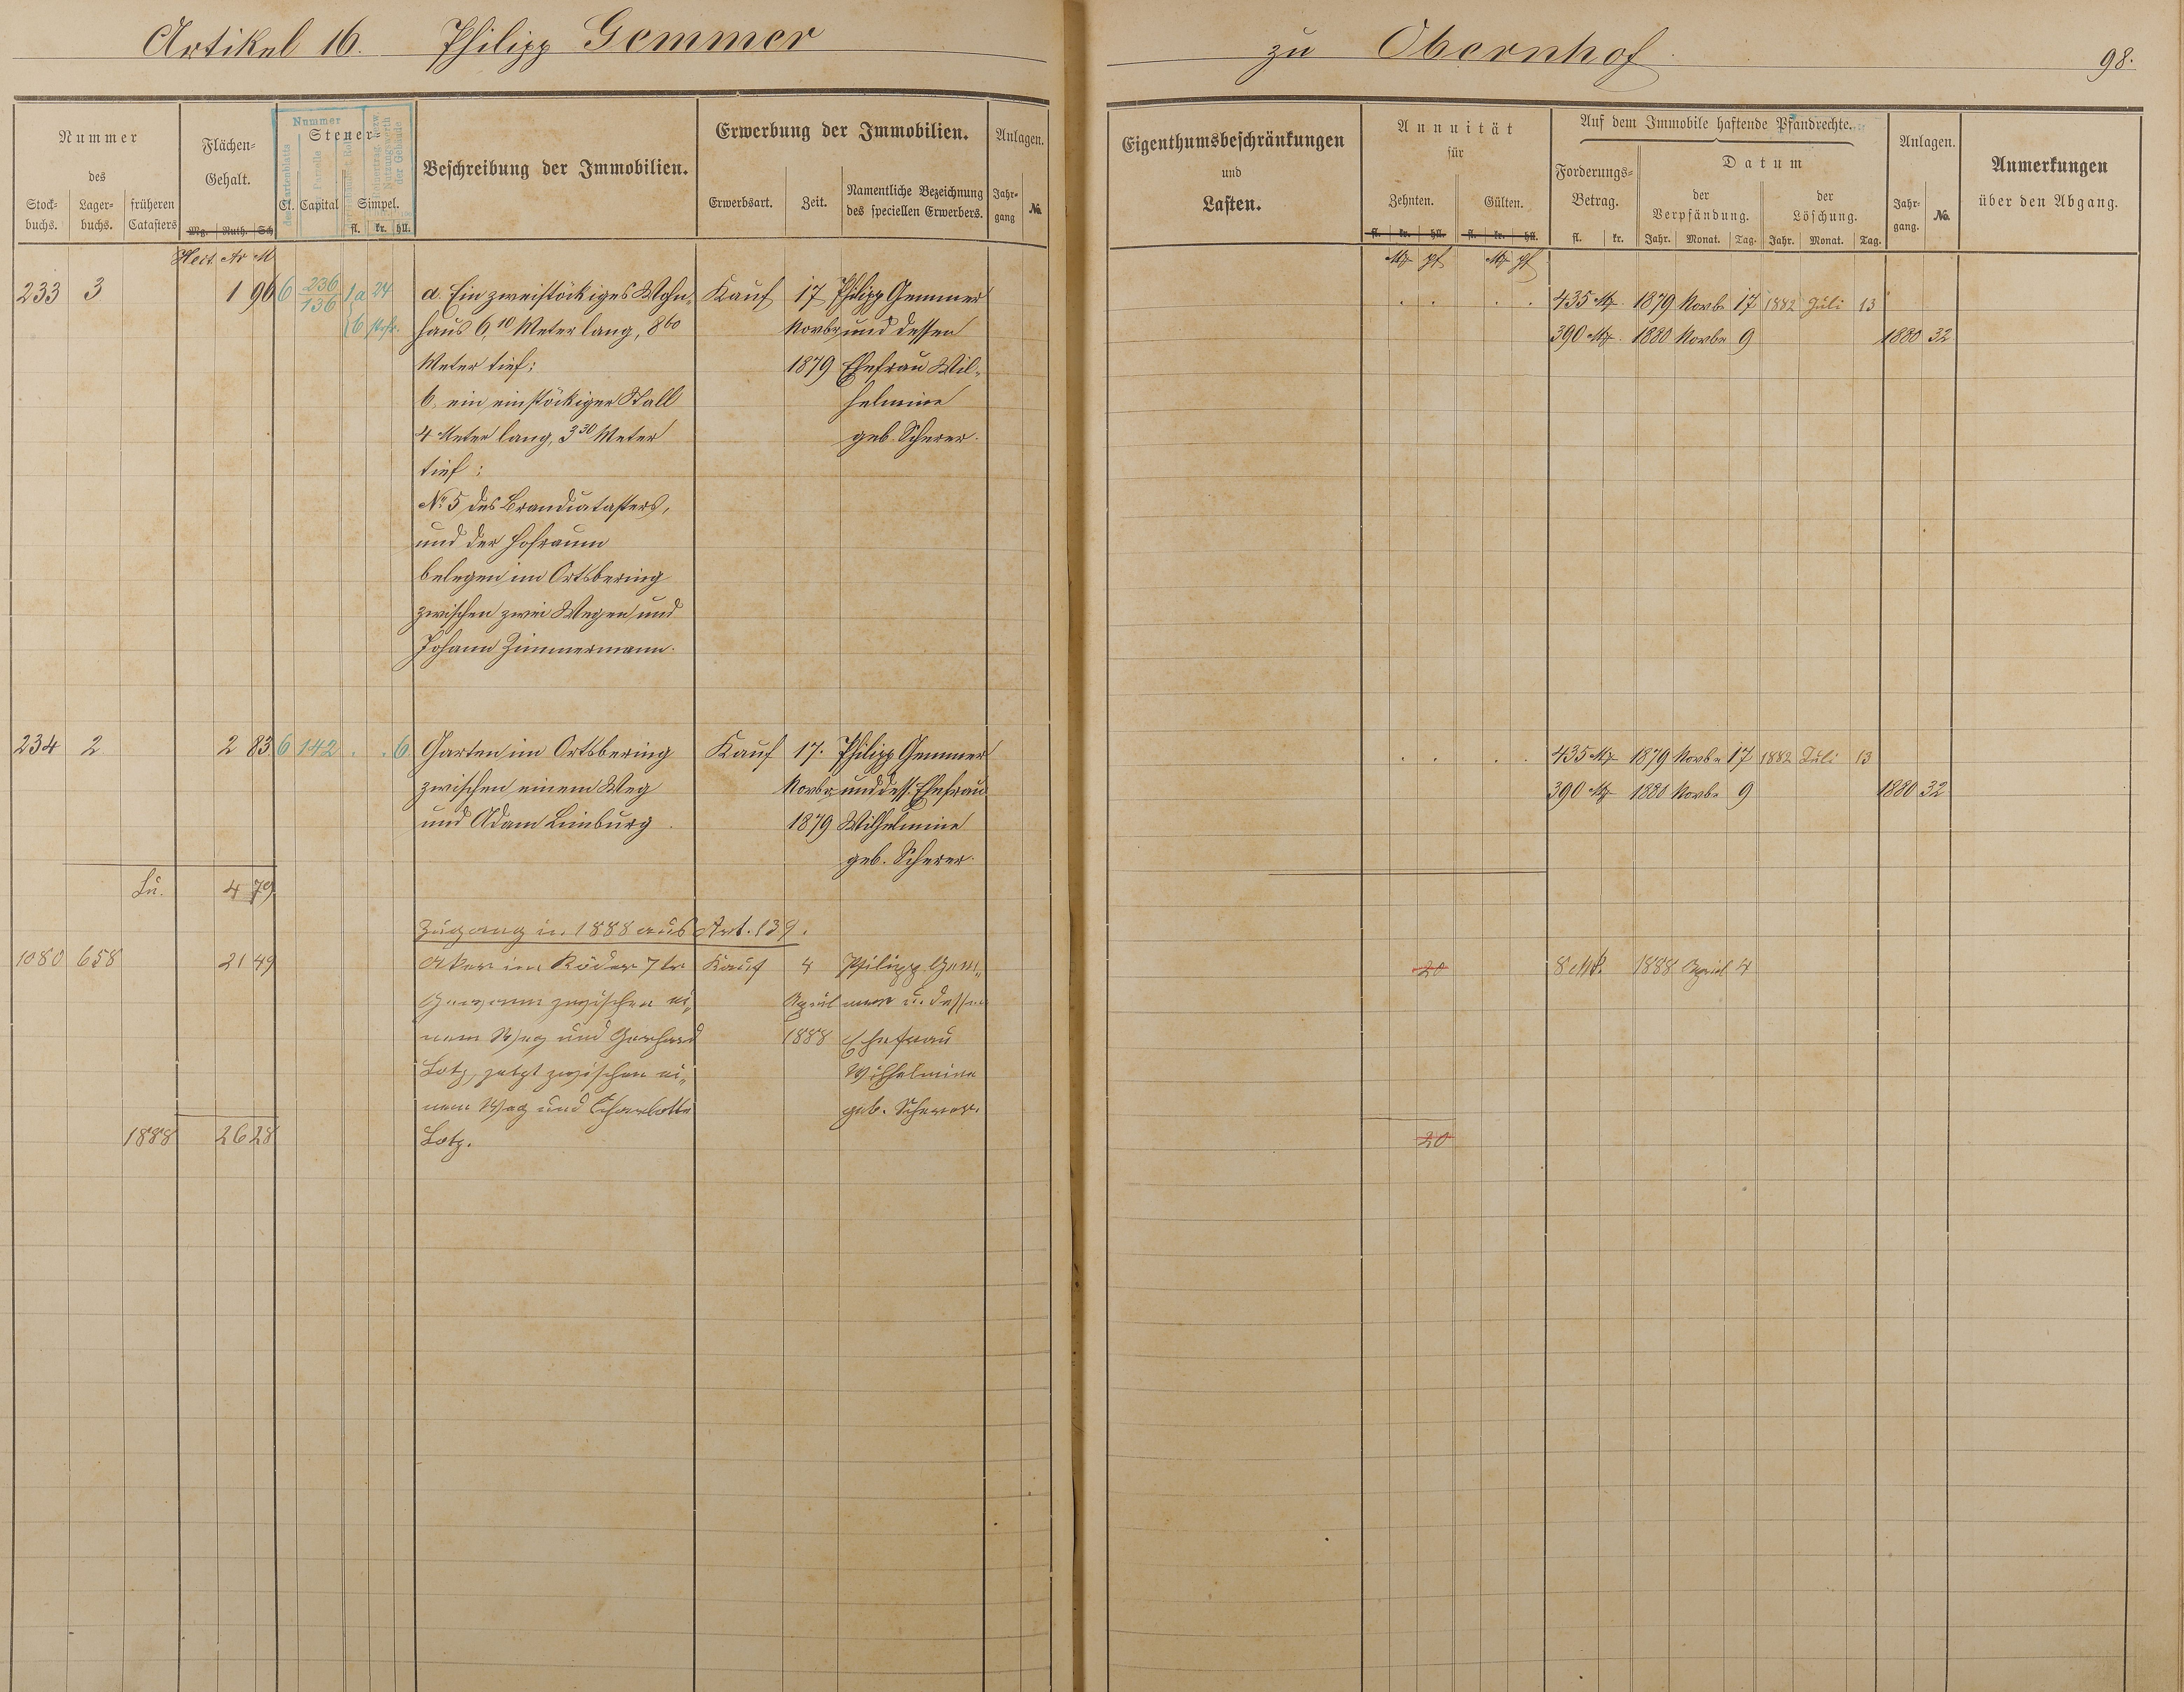 Artikel 16. Philipp Gemmer
zu Obernhof
98.
Nummer
des
Stock-
buchs.
Lager-
buchs.
früheren
Catasters
Flächen-
Gehalt.
Mg. Ruth. Sch
Hect. Ar M
Nummer
Steuer-
Cl. Capital Simpel.
fl. kr. hll.
Beschreibung der Immobilien.
Erwerbung der Immobilien.
Erwerbsart.
Zeit.
Namentliche Bezeichnung
des speciellen Erwerbers.
Anlagen.
Jahr-
gang
No.
Eigenthumsbeschränkungen
und
Lasten.
Annuität
für
Zehnten. Gülten.
fl. kr. hll. fl. kr. hll.
Mk Pf Mk Pf
Auf dem Immobile haftende Pfandrechte.
Forderungs-
Betrag.
fl. kr.
Datum
der
Verpfändung.
Jahr. Monat. Tag.
der
Löschung.
Jahr. Monat. Tag.
Anlagen.
Jahr-
gang.
No.
Anmerkungen
über den Abgang.
233 3 1 96 6 236 1 a 24
136
a. Ein zweistöckiges Wohn-
haus 6,10 Meter lang, 8 60
Meter tief;
b, ein einstöckiger Stall
4 Meter lang, 3 30 Meter
tief;
No 5 des Brandcatasters,
und der Hofraum
belegen im Ortsbering
zwischen zwei Wegen und
Johann Zimmermann.
Kauf 17 Philipp Gemmer
Novbr und dessen
1879 Ehefrau Wil-
helmine
geb. Scherer.
435 Mk 1879 Novbr 17 1882 Juli 13
390 Mk 1880 Novbr 9 1880 32
234 2 2 83 6 142 . . 6
Garten im Ortsbering
zwischen einem Weg
und Adam Limburg
Kauf 17. Philipp Gemmer
Novbr und dess. Ehefrau
1879 Wilhelmine
geb. Scherer.
435 Mk 1879 Novbr 17 1882 Juli 13
390 Mk 1880 Novbr 9 1880 32
4 79
Zugang in 1888 aus Art. 139.
1080 658 21 49
Acker im Röder 7te
Gewann zwischen ei-
nem Weg und Gerhard
Lotz, jetzt zwischen ei-
nem Weg und Charlotte
Lotz.
Kauf 4 Philipp Gem-
April mer u. dessen
1888 Ehefrau
Wilhelmine
geb. Scherer.
20
8 Mk. 1888 April 4
1888 26 28
20